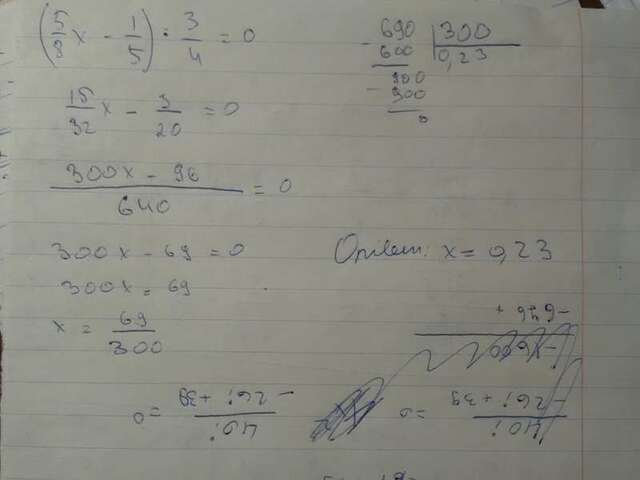 (5/8 x - 1/5) · 3/4 = 0
15/32 x - 3/20 = 0
(300x - 96)/640 = 0
300x - 69 = 0
300x = 69
x = 69/300
690 | 300
600 | 0,23
900
900
0
Ответ: x = 0,23
40i
-26i + 39
= 0
40i
-26i + 39
= 0